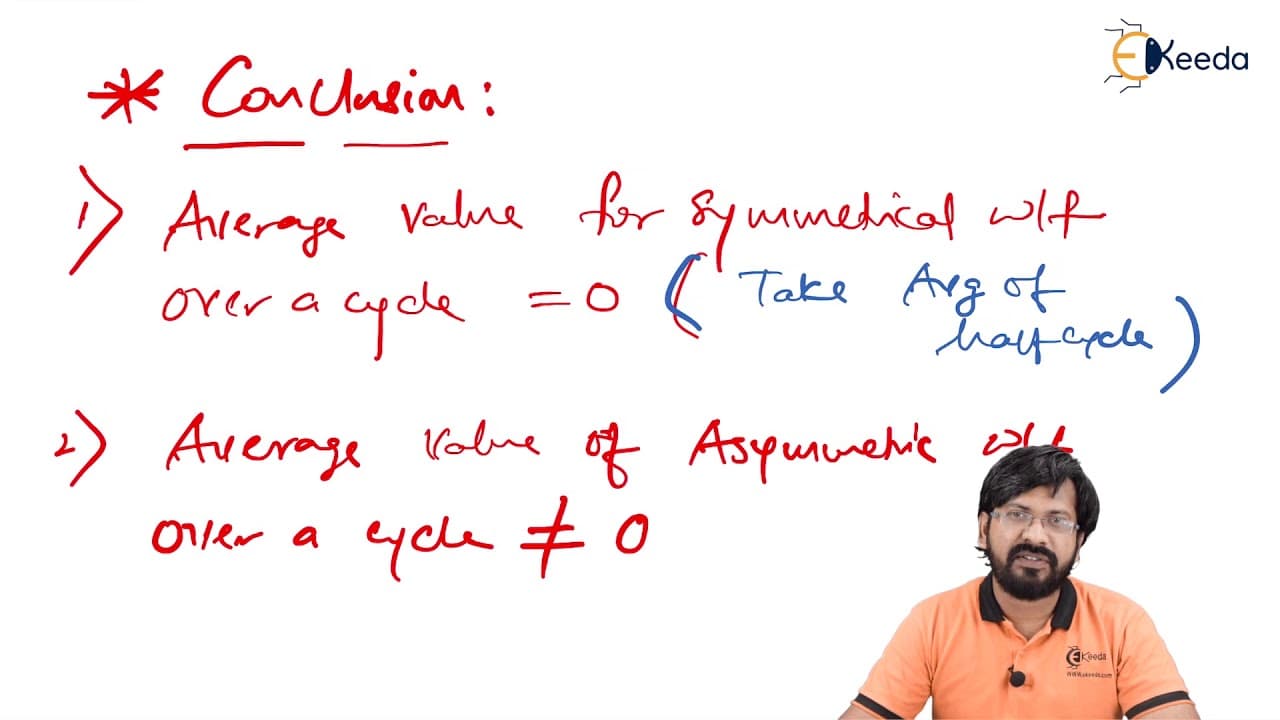 EKeeda
* Conclusion:
1) Average value for Symmetrical w/f
over a cycle = 0 ( Take Avg of
half cycle )
2) Average value of Asymmetric w/f
over a cycle ≠ 0
EKeeda
www.ekeeda.com